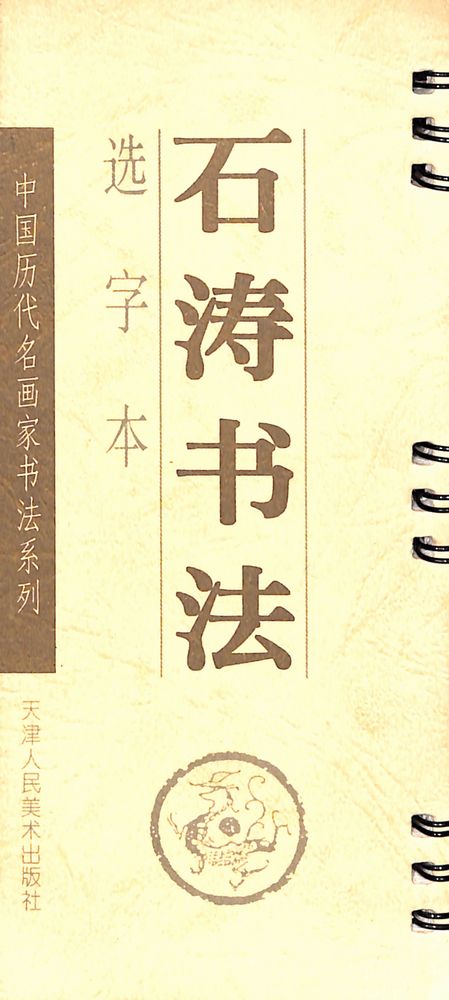 石涛书法
选字本
中国历代名画家书法系列
天津人民美术出版社